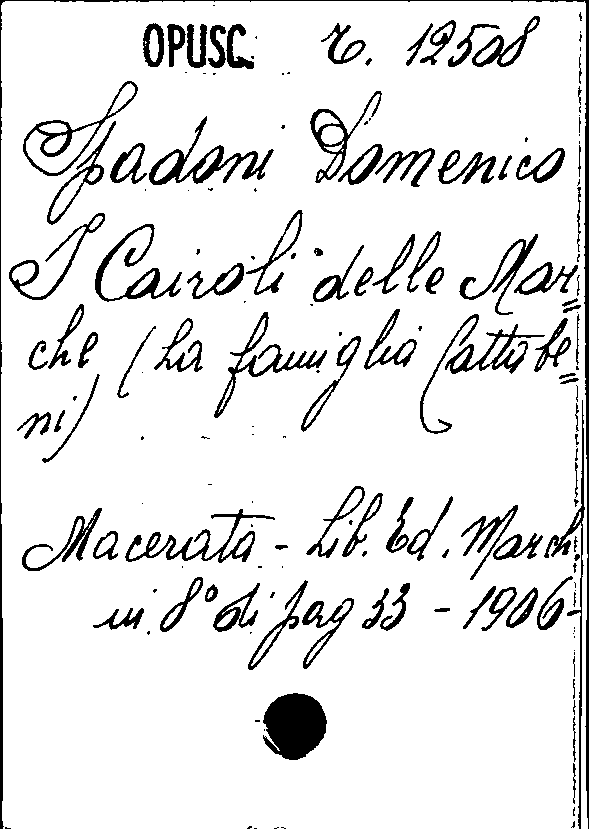 OPUSC. r. 12508
Spadoni Domenico
I Cairoli delle Mar=
che (La famiglia Cattabe=
ni)
Macerata - Lib. Ed. March.
in 8° di pag 33 - 1906-